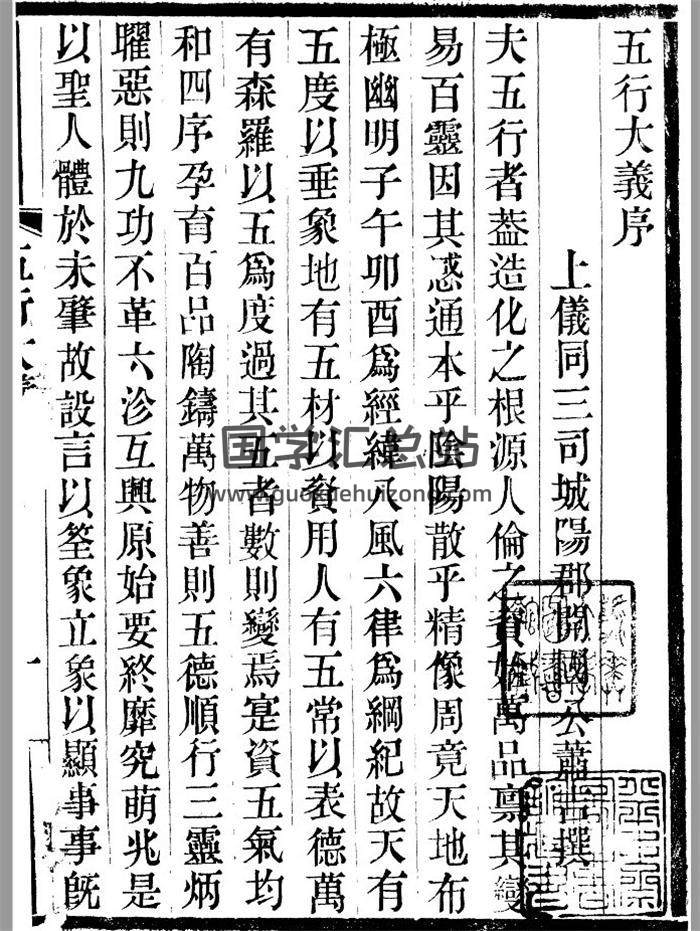 五行大義序
上儀同三司城陽郡開國公蕭吉撰
夫五行者蓋造化之根源人倫之資始萬品稟其變
易百靈因其惑通本乎陰陽散乎精像周竟天地布
極幽明子午卯酉爲經緯八風六律爲綱紀故天有
五度以垂象地有五材以資用人有五常以表德萬
有森羅以五爲度過其五者數則變焉寔資五氣均
和四序孕育百品陶鑄萬物善則五德順行三靈炳
曜惡則九功不革六沴互興原始要終靡究萌兆是
以聖人體於未肇故設言以筌象立象以顯事事旣
一
国学汇总站
www.guoxuehuizong.com